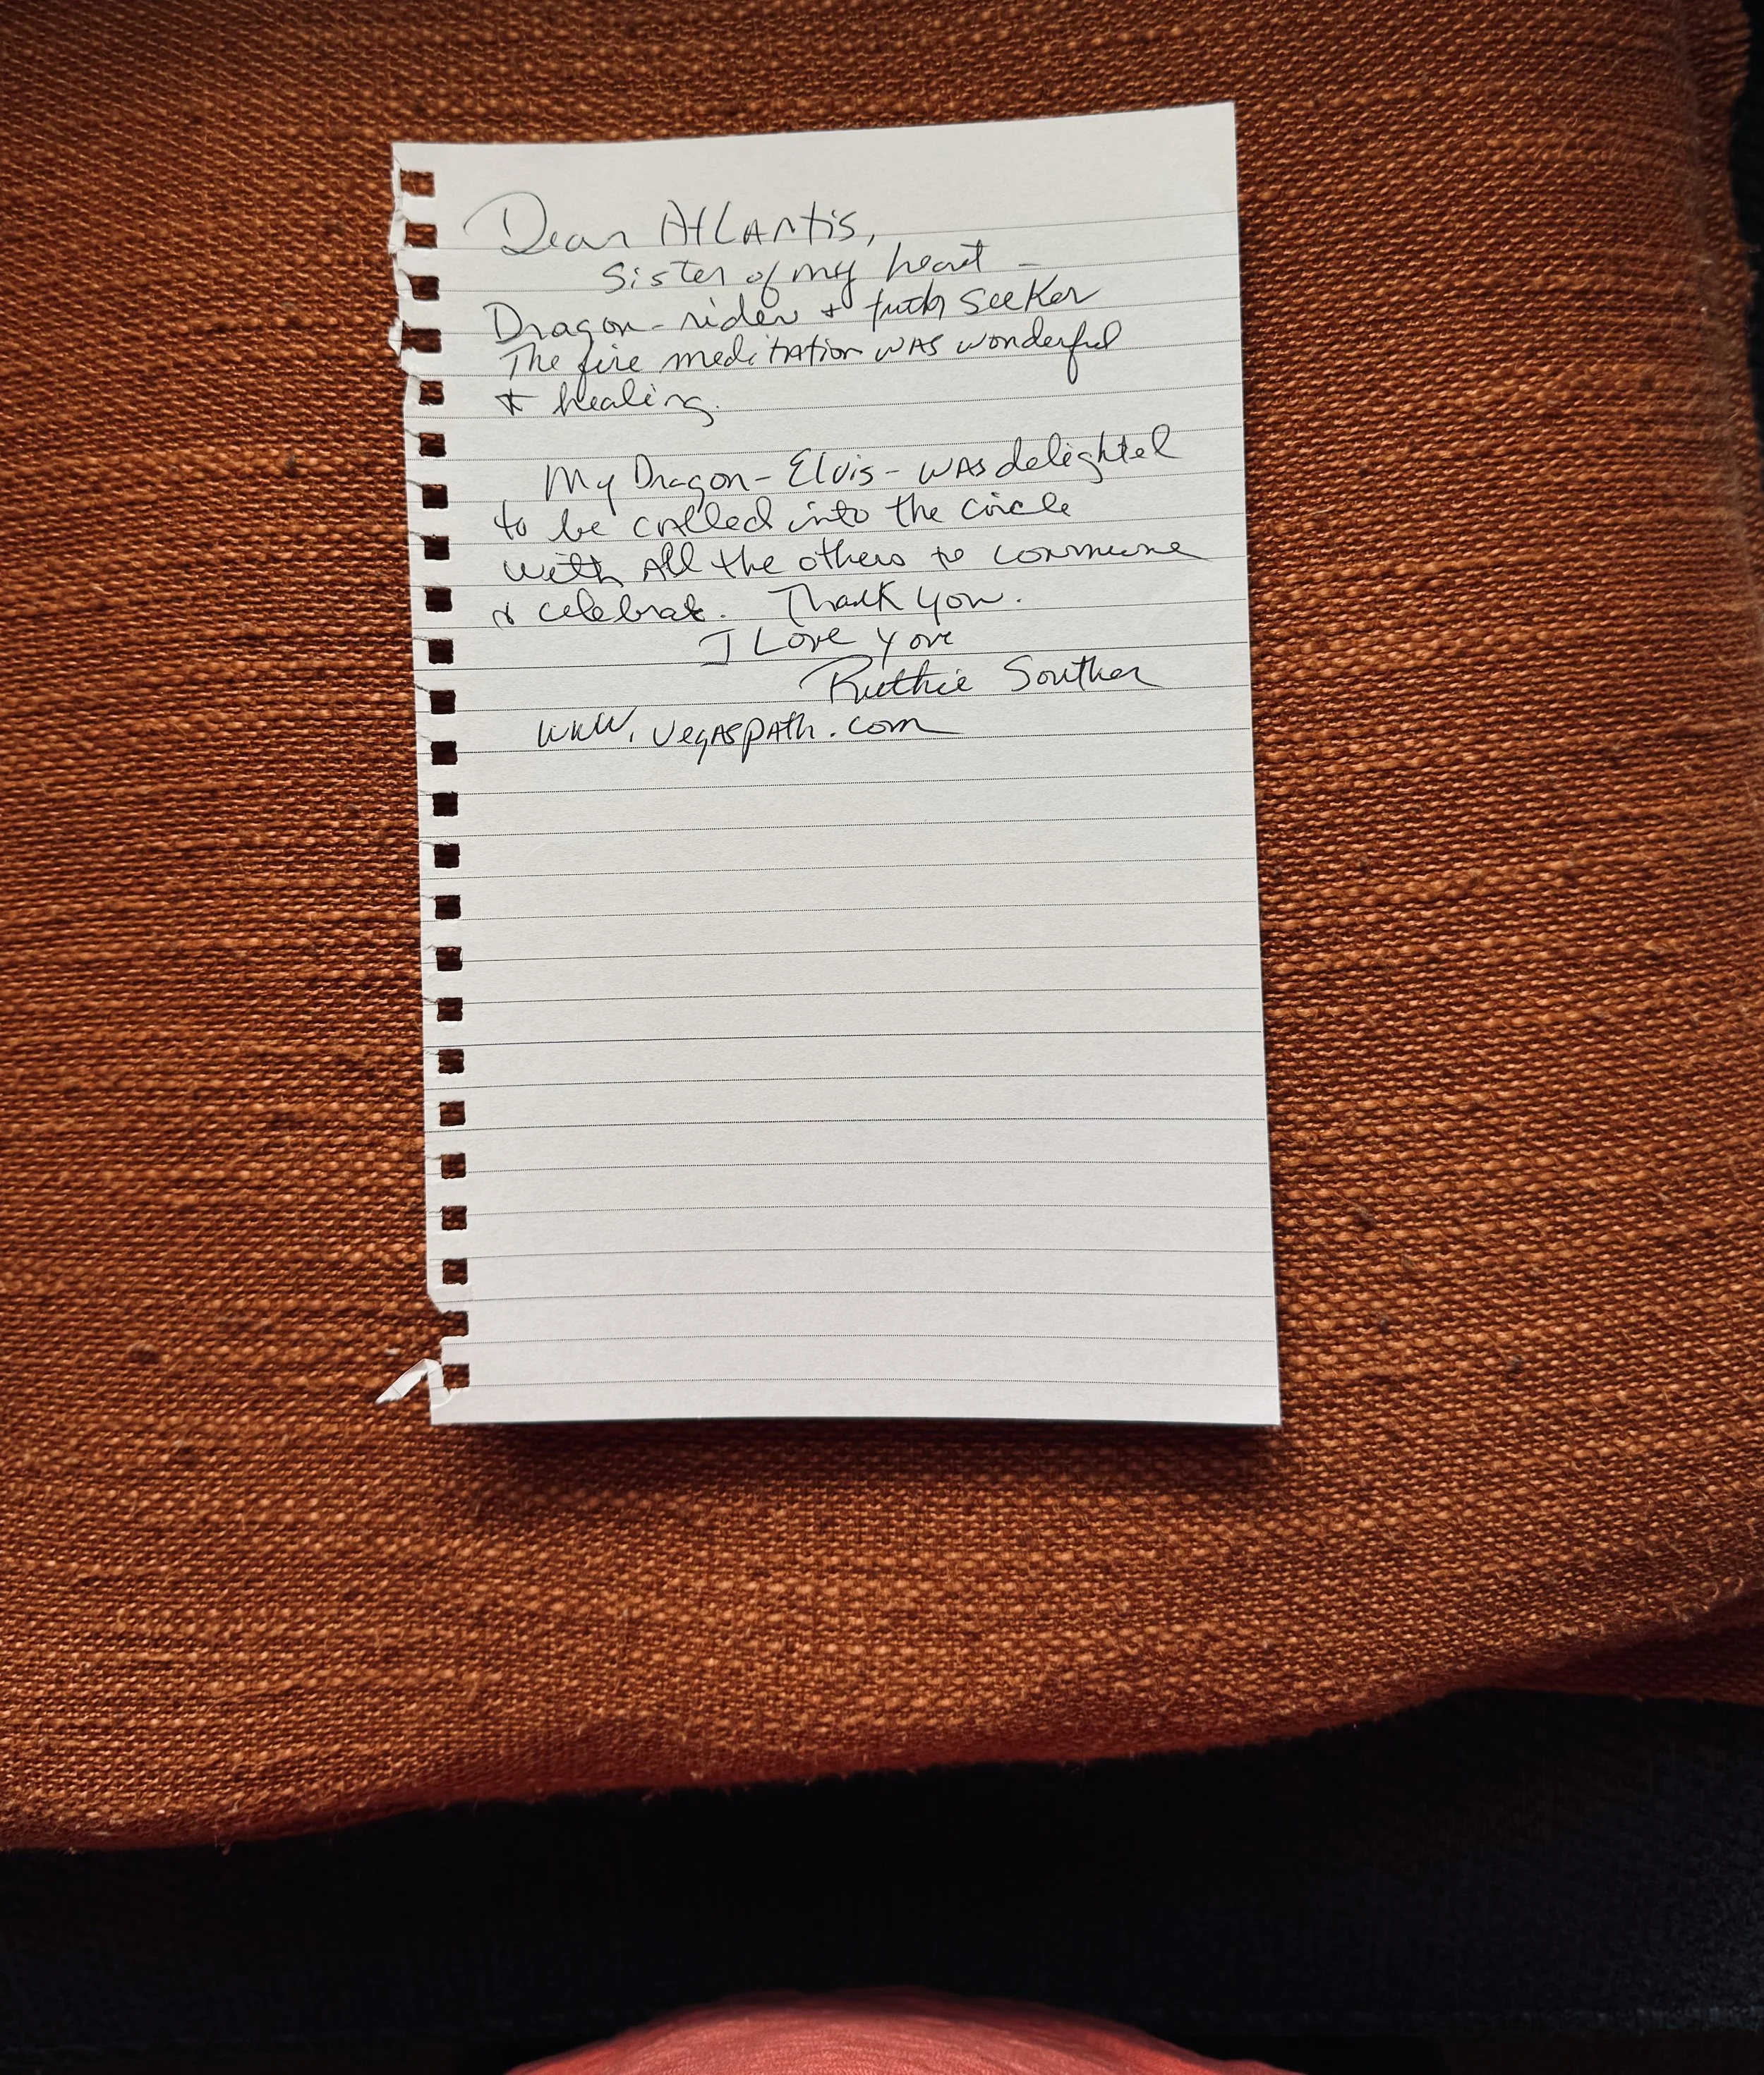 Dear Atlantis,
Sister of my heart -
Dragon-rider & truth seeker
The fire meditation was wonderful
& healing.
My Dragon - Elvis - was delighted
to be called into the circle
with all the others to commune
& celebrate. Thank you.
I Love you
Ruthie Souther
www.vegaspath.com